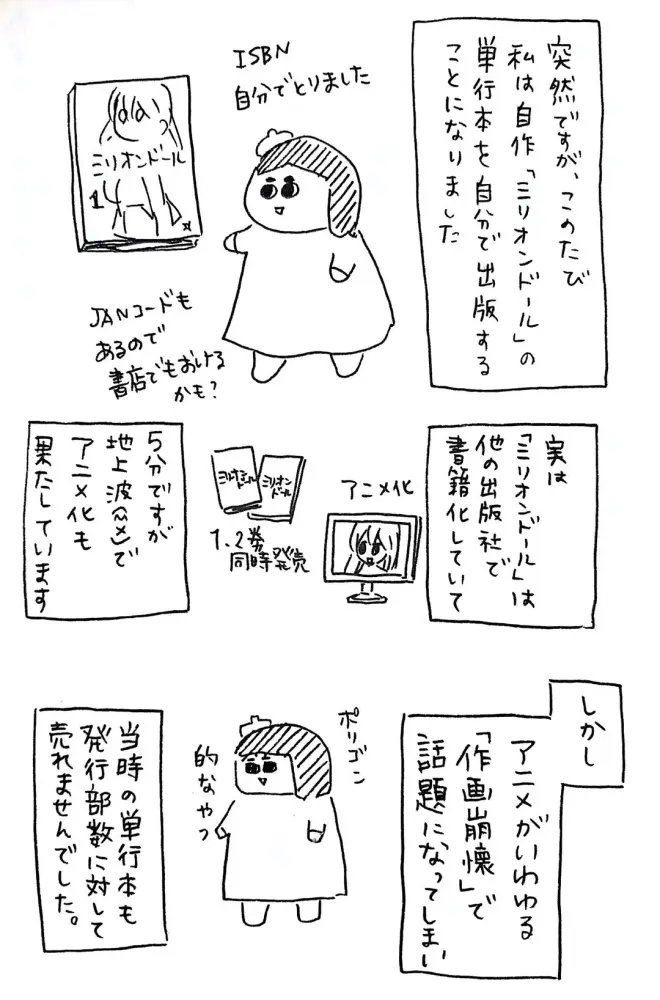 突然ですが、このたび
私は自作「ミリオンドール」の
単行本を自分で出版する
ことになりました
ISBN
自分でとりました
ミリオンドール
1
JANコードも
あるので
書店でもおける
かも?
実は
「ミリオンドール」は
他の出版社で
書籍化していて
アニメ化
ミリオンドール
ミリオン
ドール
1、2巻
同時発売
5分ですが
地上波(MX)で
アニメ化も
果たしています
しかし
アニメがいわゆる
「作画崩壊」で
話題になってしまい
ポリゴン
的なやつ
当時の単行本も
発行部数に対して
売れませんでした。